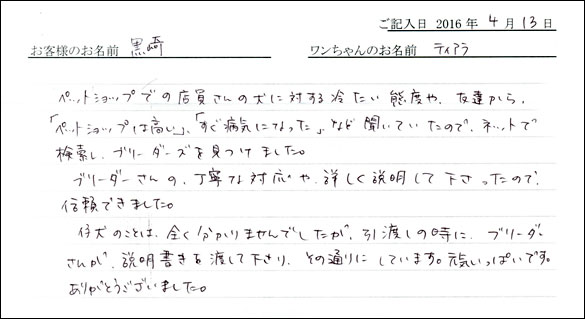 ご記入日 2016 年 4 月 13 日
お客様のお名前 黒崎 ワンちゃんのお名前 ティアラ
ペットショップでの店員さんの犬に対する冷たい態度や、友達から、
「ペットショップは高い」、「すぐ病気になった」など聞いていたので、ネットで
検索し、ブリーダーズを見つけました。
ブリーダーさんの、丁寧な対応や、詳しく説明して下さったので、
信頼できました。
仔犬のことは、全く分かりませんでしたが、引渡しの時に、ブリーダー
さんが、説明書きを渡して下さり、その通りにしています。元気いっぱいです。
ありがとうございました。